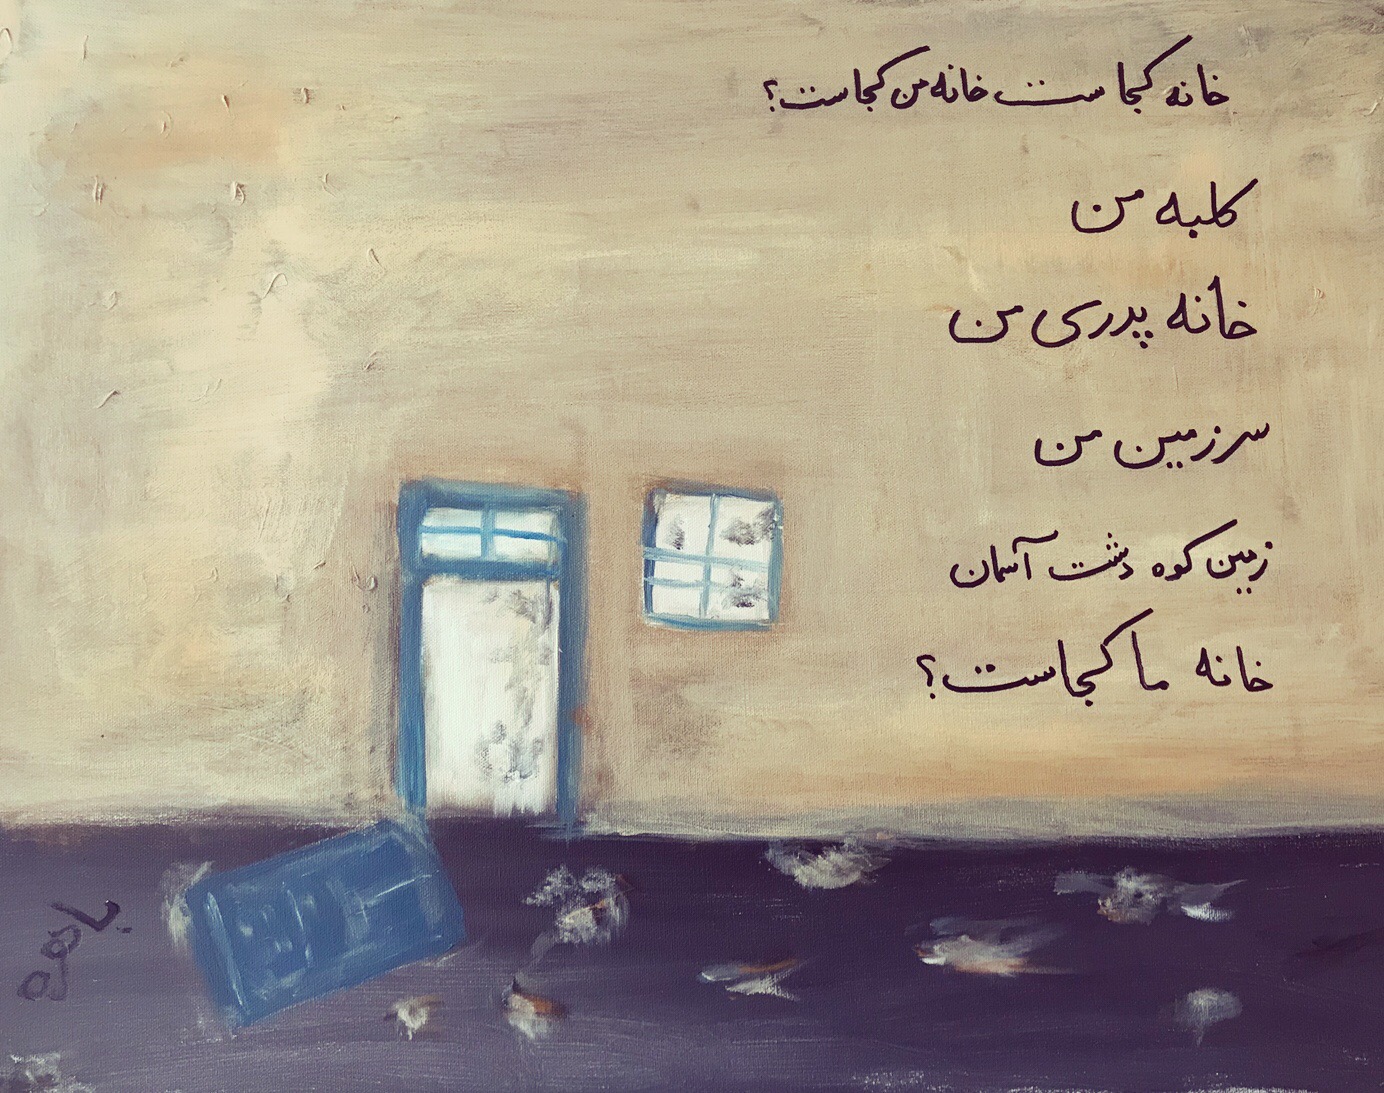 خانه کجا ست خانه من کجاست؟
کلبه من
خانه پدری من
سرزمین من
زمین کوه دشت آسمان
خانه ما کجاست؟